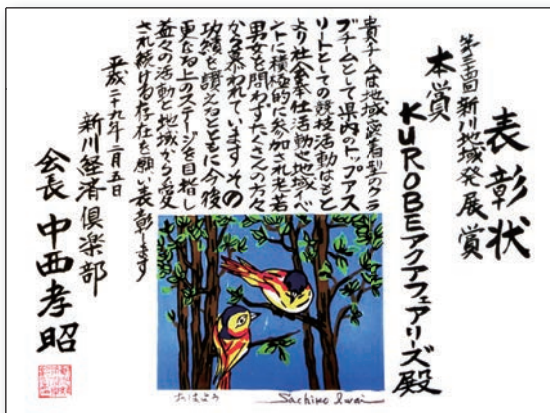 表彰状
第三四回新川地域発展賞
本賞
KUROBEアクアフェアリーズ殿
貴チームは地域密着型のクラ
ブチームとして県内のトップアス
リートとしての競技活動はもと
より社会奉仕活動や地域イベ
ントに積極的に参加され老若
男女を問わずたくさんの方々
から慕われています その
功績を讃えるとともに今後
更なる上のステージを目指し
益々の活動と地域から愛
され続ける存在を願い表彰します
平成二十九年二月五日
新川経済倶楽部
会長 中西孝昭
おはよう
Sachiko Iwai